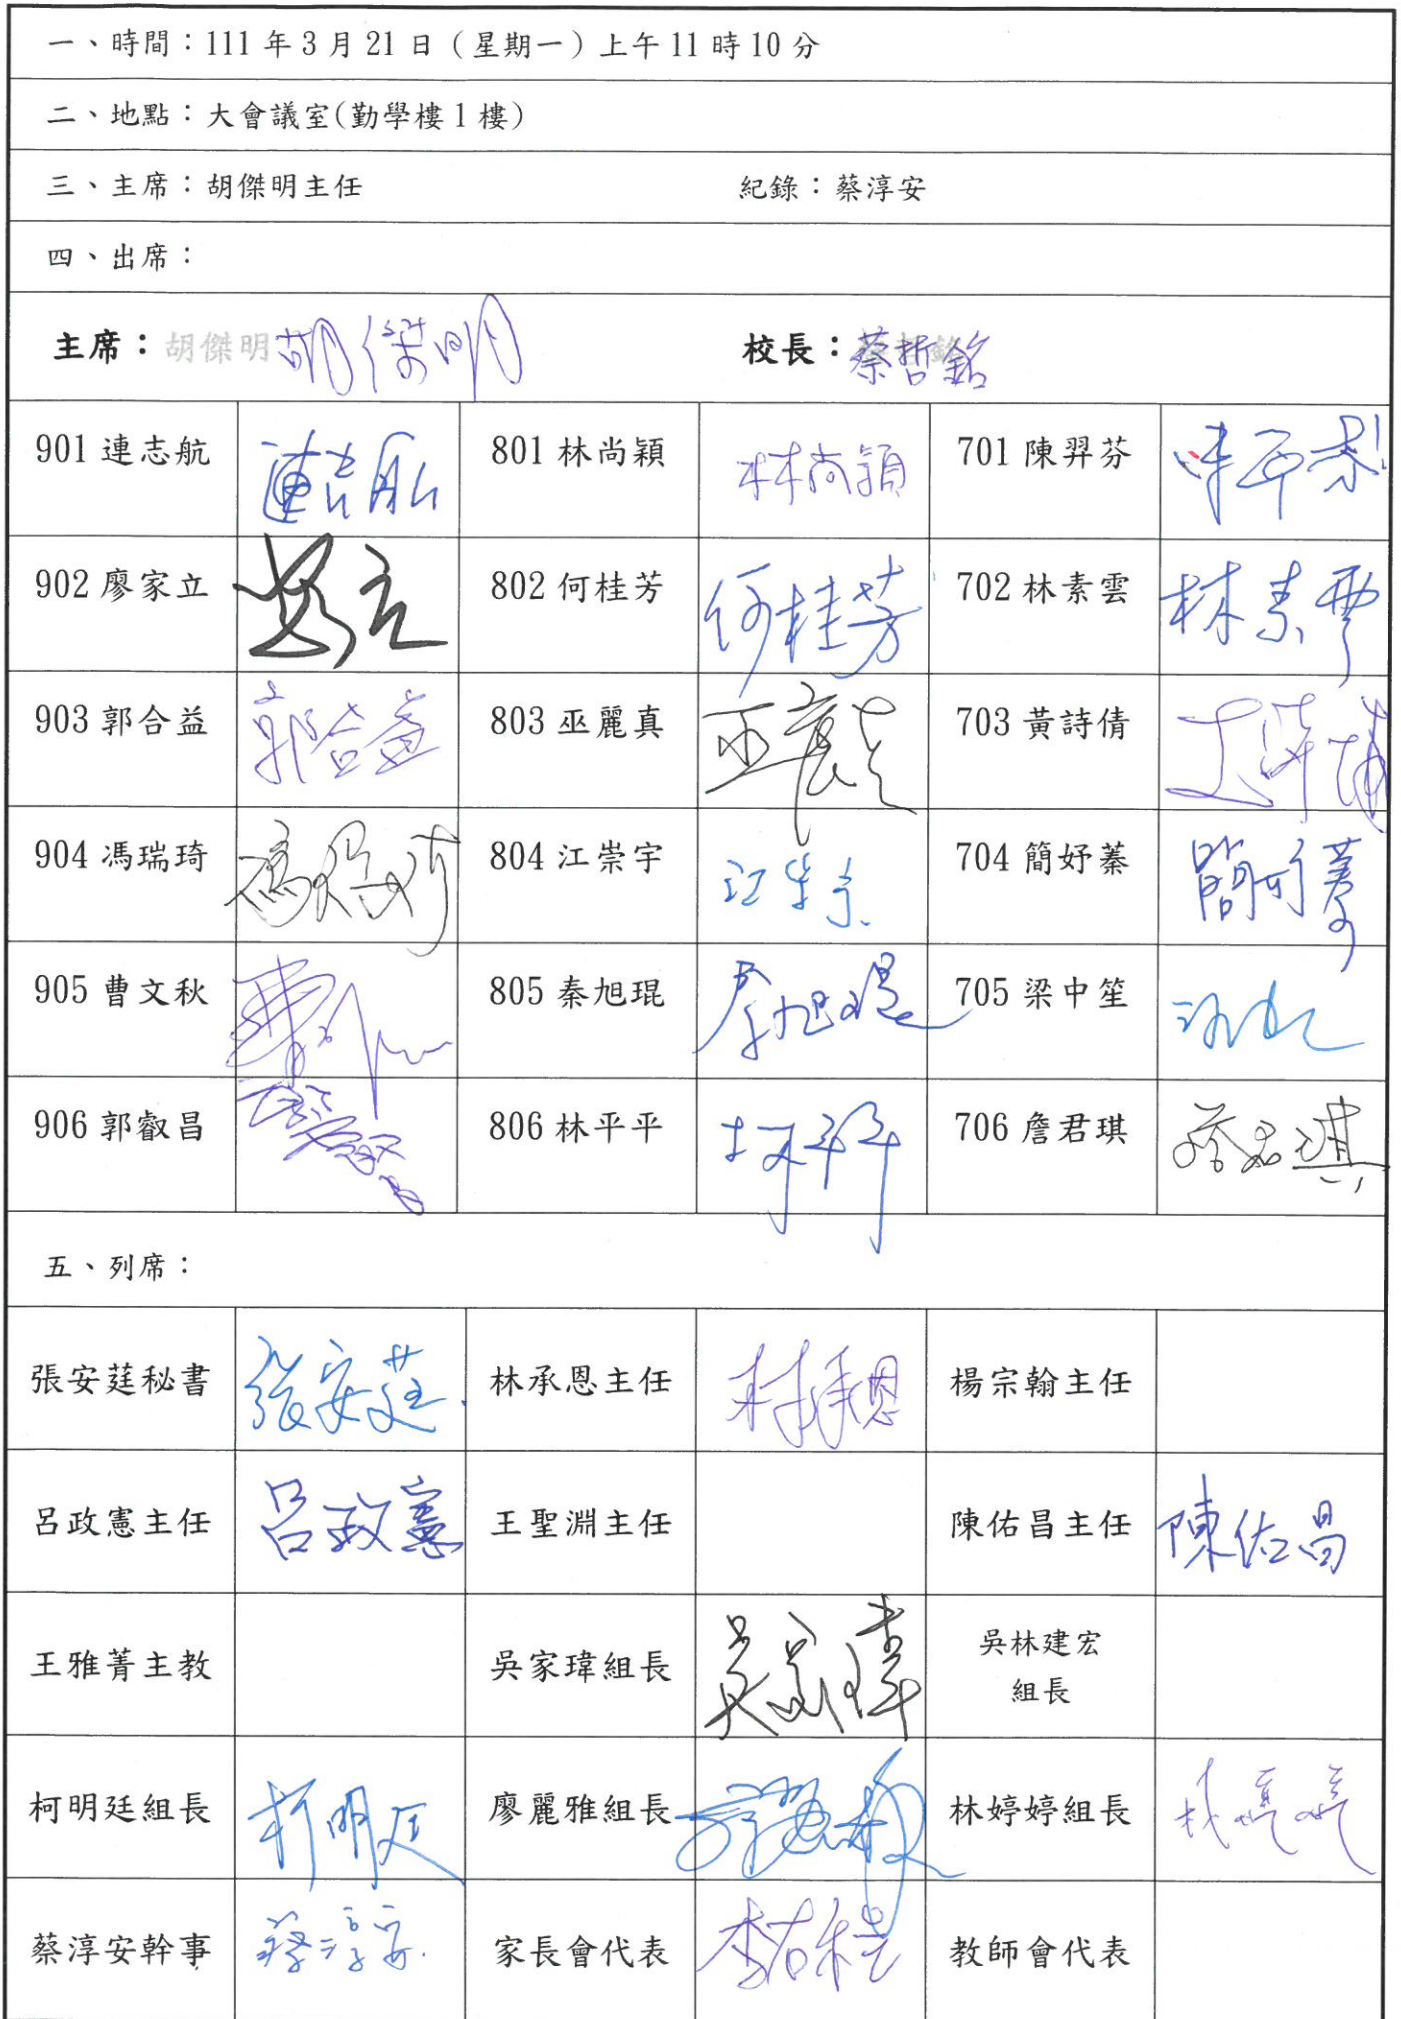 一、時間：111 年 3 月 21 日（星期一）上午 11 時 10 分
二、地點：大會議室(勤學樓 1 樓)
三、主席：胡傑明主任 紀錄：蔡淳安
四、出席：
主席：胡傑明 胡傑明 校長：蔡哲銘
901 連志航 連志航 801 林尚穎 林尚穎 701 陳羿芬
902 廖家立 802 何桂芳 何桂芳 702 林素雲 林素雲
903 郭合益 郭合益 803 巫麗真 巫麗真 703 黃詩倩
904 馮瑞琦 馮瑞琦 804 江崇宇 江崇宇 704 簡妤蓁 簡妤蓁
905 曹文秋 805 秦旭琨 秦旭琨 705 梁中笙
906 郭叡昌 806 林平平 林平平 706 詹君琪 詹君琪
五、列席：
張安莛秘書 張安莛 林承恩主任 林承恩 楊宗翰主任
呂政憲主任 呂政憲 王聖淵主任 陳佑昌主任 陳佑昌
王雅菁主教 吳家瑋組長 吳家瑋 吳林建宏
組長
柯明廷組長 柯明廷 廖麗雅組長 林婷婷組長 林婷婷
蔡淳安幹事 蔡淳安 家長會代表 教師會代表